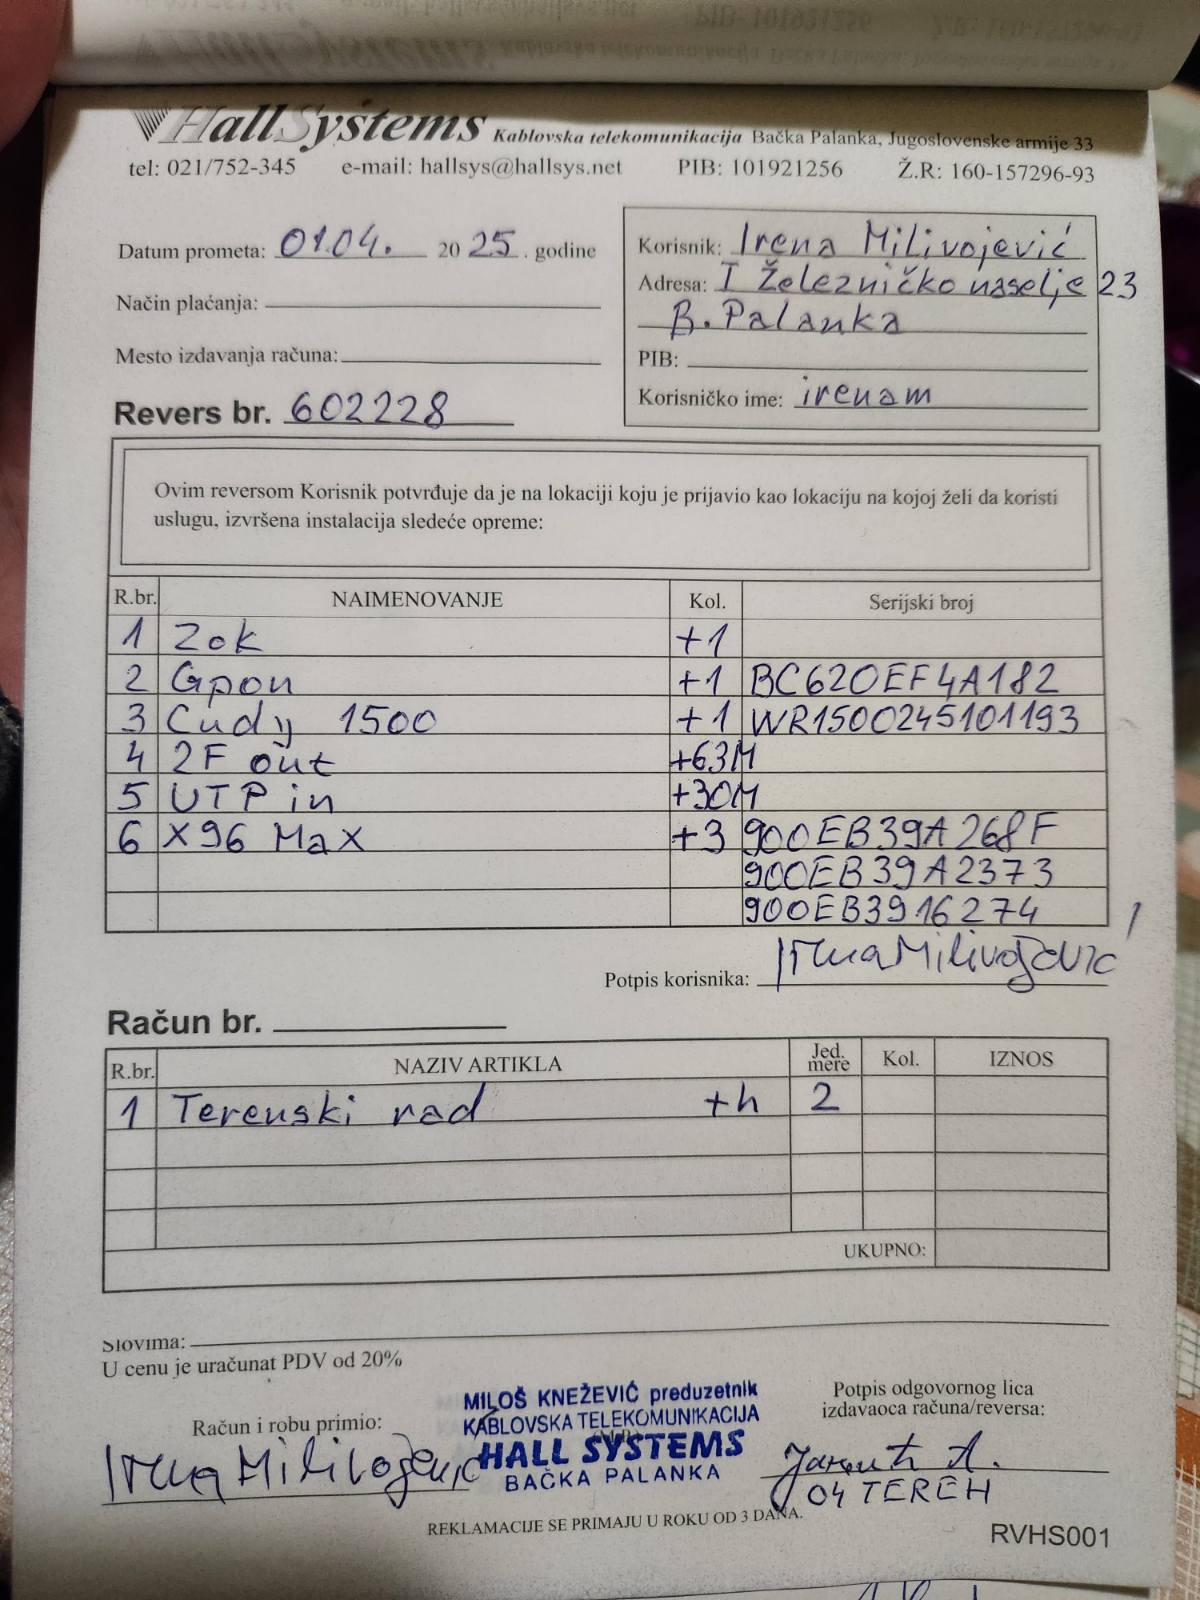 HallSystems Kablovska telekomunikacija Bačka Palanka, Jugoslovenske armije 33
tel: 021/752-345 e-mail: hallsys@hallsys.net PIB: 101921256 Ž.R: 160-157296-93
Datum prometa: 01.04. 2025. godine
Način plaćanja:
Mesto izdavanja računa:
Revers br. 602228
Korisnik: Irena Milivojević
Adresa: I Železničko naselje 23
B. Palanka
PIB:
Korisničko ime: irenam
Ovim reversom Korisnik potvrđuje da je na lokaciji koju je prijavio kao lokaciju na kojoj želi da koristi
uslugu, izvršena instalacija sledeće opreme:
R.br. NAIMENOVANJE Kol. Serijski broj
1 Zok +1
2 Gpon +1 BC620EF4A182
3 Cudy 1500 +1 WR1500245101193
4 2F out +63M
5 UTP in +30M
6 X96 Max +3 900EB39A268F
900EB39A2373
900EB3916274
Potpis korisnika: Irena Milivojević
Račun br.
R.br. NAZIV ARTIKLA Jed. mere Kol. IZNOS
1 Terenski rad +h 2
UKUPNO:
Slovima:
U cenu je uračunat PDV od 20%
Račun i robu primio:
Irena Milivojević
MILOŠ KNEŽEVIĆ preduzetnik
KABLOVSKA TELEKOMUNIKACIJA
HALL SYSTEMS
BAČKA PALANKA
Potpis odgovornog lica
izdavaoca računa/reversa:
A.
04 TEREH
REKLAMACIJE SE PRIMAJU U ROKU OD 3 DANA.
RVHS001